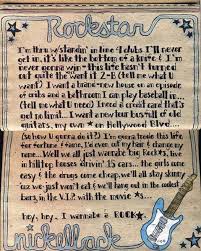 Rockstar
I'm thru w/standin' in line @ clubs I'll never
get in, it's like the bottom of a 9inth & I'm
never gonna win - this life hasn't turned
out quite the way I want it 2-B (tell me what U
want) I want a brand-new house on an episode
of cribs and a bathroom I can play baseball in...
(tell me what U need) I need a credit card that's
got no limit... I want a new tour bus full of old
guitars, my own ★ on Hollywood Blvd.
(so how U gonna do it?) I'm gonna trade this life
for fortune & fame, I'd even cut my hair & change
my name... Well we all just wanna be big Rockstars, live in
hilltop houses drivin' 15 cars... the girls come
easy & the drugs come cheap, we'll all stay skinny
cuz we just won't eat & we'll hang out in the coolest
bars, in the V.I.P. with the movie ★...
hey, hey, I wannabe a ROCK★
nickelback